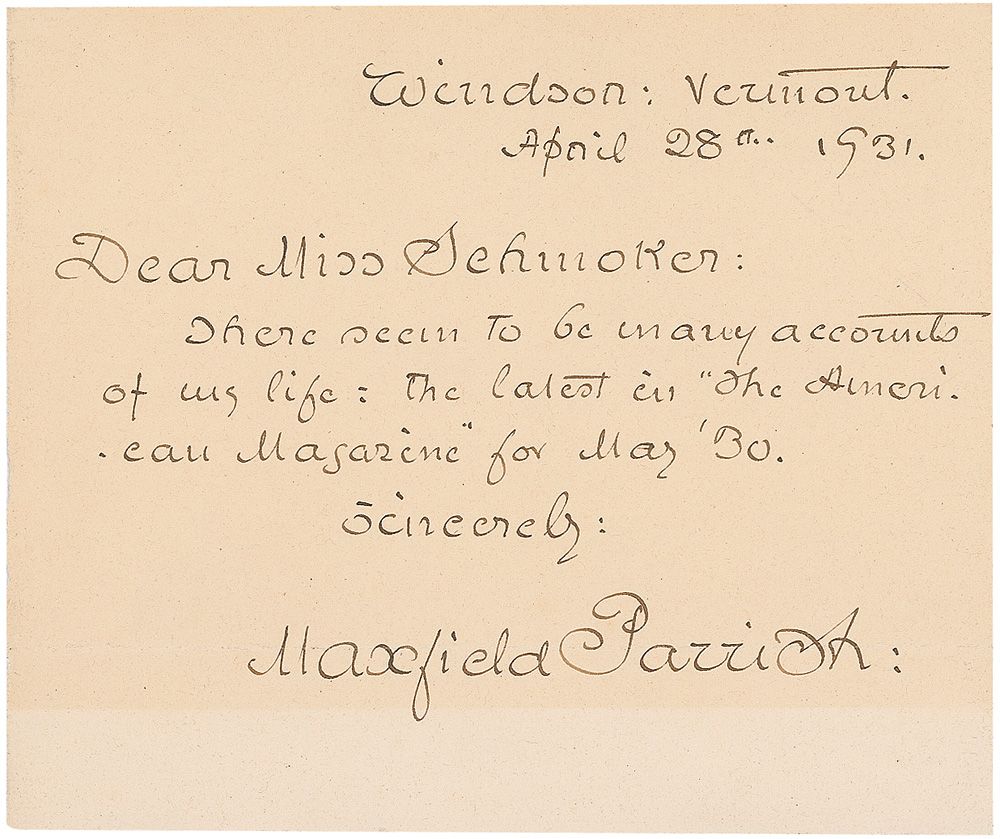 Windsor: Vermont.
April 28th.. 1931.
Dear Miss Schmoker:
There seem to be many accounts
of my life: the latest in "The Ameri.
.can Magazine" for May '30.
Sincerely:
Maxfield Parrish: